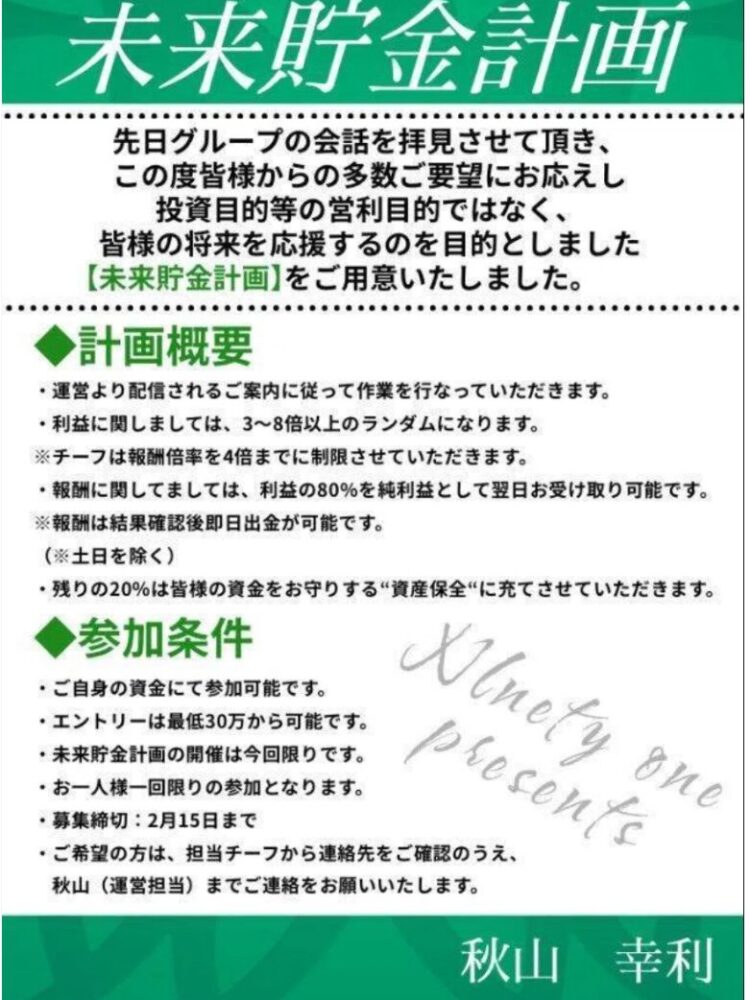 未来貯金計画
先日グループの会話を拝見させて頂き、
この度皆様からの多数ご要望にお応えし
投資目的等の営利目的ではなく、
皆様の将来を応援するのを目的としました
【未来貯金計画】をご用意いたしました。
◆計画概要
・運営より配信されるご案内に従って作業を行なっていただきます。
・利益に関しましては、3〜8倍以上のランダムになります。
※チーフは報酬倍率を4倍までに制限させていただきます。
・報酬に関してましては、利益の80%を純利益として翌日お受け取り可能です。
※報酬は結果確認後即日出金が可能です。
（※土日を除く）
・残りの20%は皆様の資金をお守りする“資産保全“に充てさせていただきます。
◆参加条件
・ご自身の資金にて参加可能です。
・エントリーは最低30万から可能です。
・未来貯金計画の開催は今回限りです。
・お一人様一回限りの参加となります。
・募集締切：2月15日まで
・ご希望の方は、担当チーフから連絡先をご確認のうえ、
秋山（運営担当）までご連絡をお願いいたします。
NInety one
presents
秋山　幸利